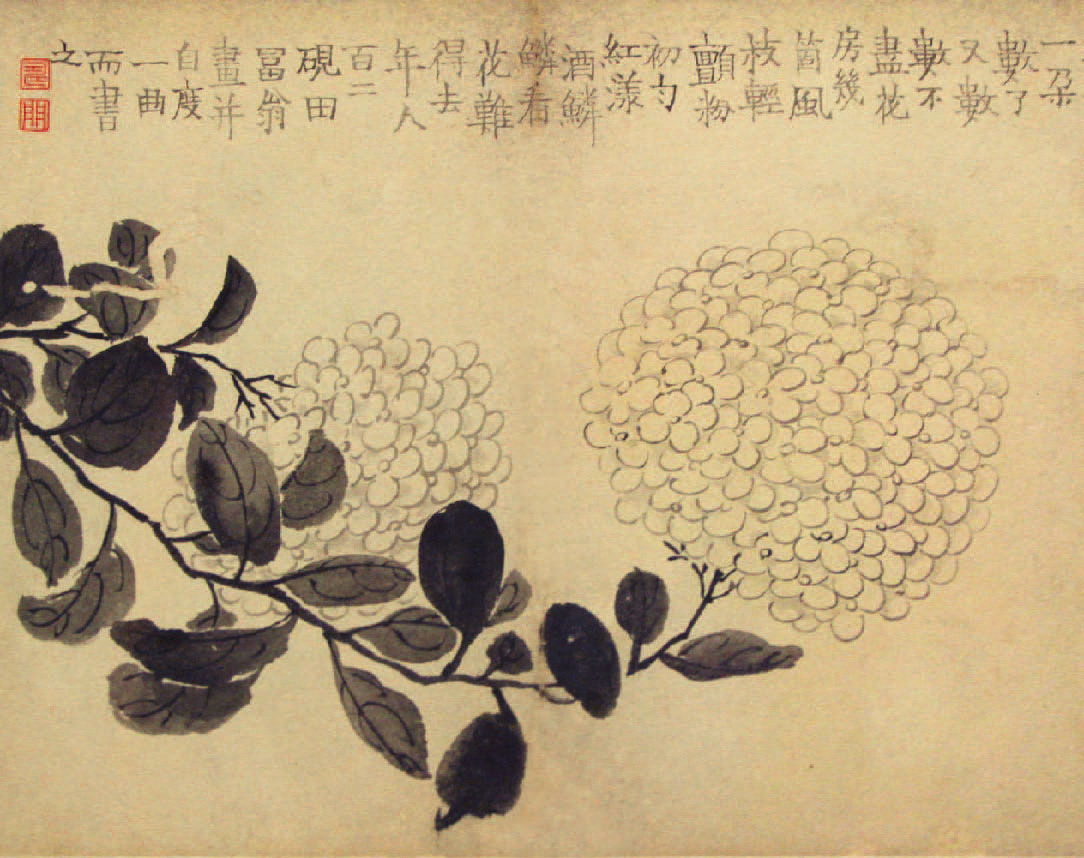 一朵
數了
又數
數不
盡花
房幾
箇風
枝輕
顫粉
初勻
紅漾
酒鱗
鱗看
花難
得去
年人
百二
硯田
冨翁
畫并
自度
一曲
而書
之